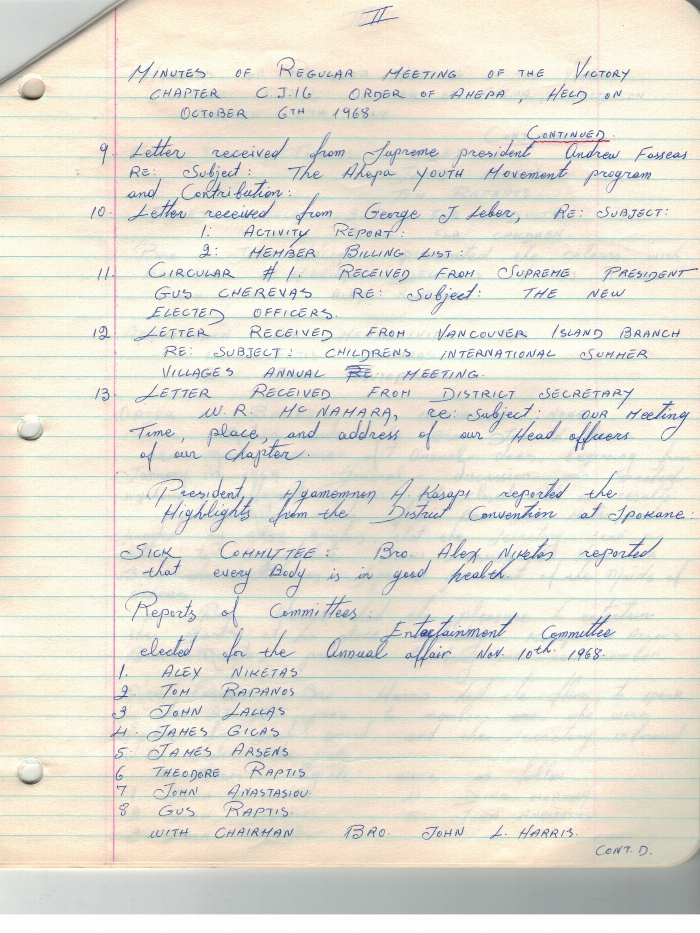 II
MINUTES OF REGULAR MEETING OF THE VICTORY
CHAPTER C.J.16 ORDER OF AHEPA, HELD ON
OCTOBER 6TH 1968
CONTINUED.
9. Letter received from Supreme president Andrew Fasseas
RE: Subject: The Ahepa YOUTH Movement program
and Contribution:
10. Letter received from George J. Leber, RE: SUBJECT:
1: ACTIVITY REPORT:
2: MEMBER BILLING LIST:
11. CIRCULAR #1. RECEIVED FROM SUPREME PRESIDENT
GUS CHEREVAS RE: Subject: THE NEW
ELECTED OFFICERS.
12. LETTER RECEIVED FROM VANCOUVER ISLAND BRANCH
RE: SUBJECT: CHILDRENS INTERNATIONAL SUMMER
VILLAGES ANNUAL MEETING.
13. LETTER RECEIVED FROM DISTRICT SECRETARY
W.R. Mc NAMARA, re: Subject: OUR MEETING
Time, place, and address of our Head officers
of our chapter.
President, Agamemnon A. Kasapi reported the
Highlights from the District Convention at Spokane:
SICK COMMITTEE: Bro. Alex Niketas reported
that every Body is in good health.
Reports of Committees:
Entertainment Committee
elected for the Annual affair Nov. 10th 1968.
1. ALEX NIKETAS
2 TOM RAPANOS
3 JOHN LALLAS
4. JAMES GICAS
5. JAMES ARSENS
6 THEODORE RAPTIS
7 JOHN ANASTASIOU.
8 GUS RAPTIS
WITH CHAIRMAN BRO. JOHN L. HARRIS.
CONT. D.